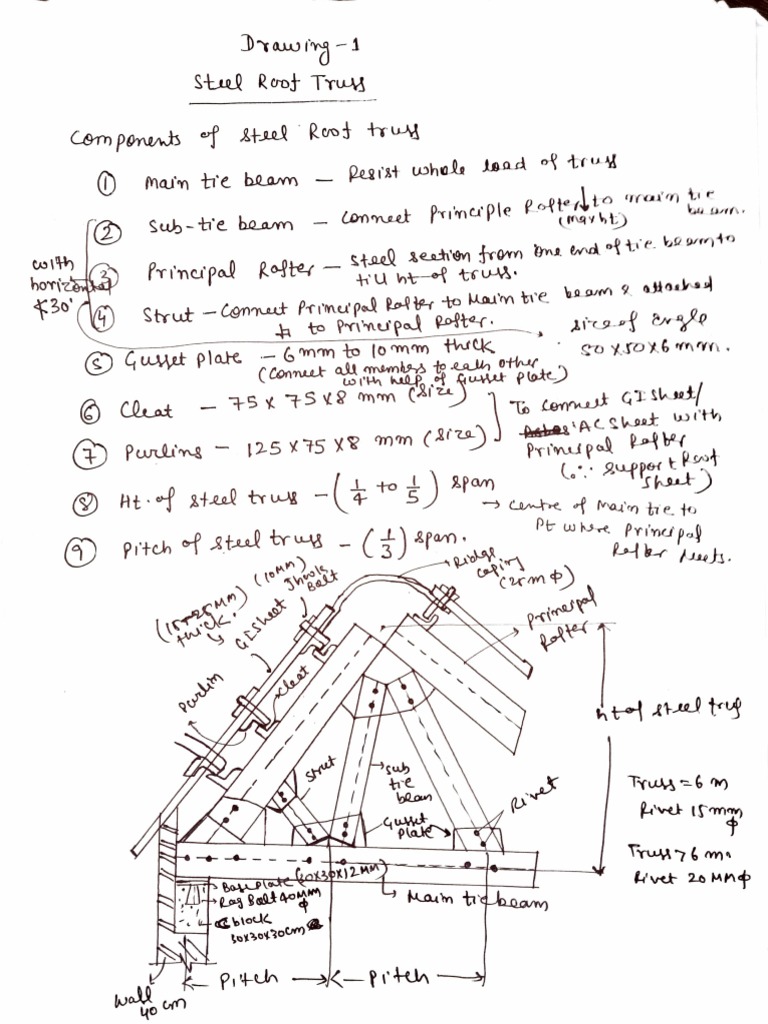 Drawing-1
Steel Roof Truss
Components of Steel Roof truss
① Main tie beam – Resist whole load of truss
② Sub-tie beam – Connect Principle Rafter ↓ to main tie beam.
(max ht)
③ Principal Rafter – Steel section from one end of tie beam to
till ht of truss.
with
horizontal
∢30°
④ Strut – Connect Principal Rafter to Main tie beam & attached
to Principal Rafter.
Size of Angle
50 x 50 x 6 mm.
⑤ Gusset plate – 6 mm to 10 mm thick
(Connect all members to each other
with help of Gusset Plate)
⑥ Cleat – 75 x 75 x 8 mm (size)
⑦ Purlins – 125 x 75 x 8 mm (size)
To connect GI Sheet/
AC Sheet with
Principal Rafter
(∵ Support Roof
Sheet)
⑧ Ht. of steel truss – (1/4 to 1/5) span
→ Centre of Main tie to
Pt where Principal
Rafter Meets.
⑨ Pitch of steel truss – (1/3) span.
(15-25MM)
thick.
GI Sheet
(10MM)
Jhook
Bolt
Ridge
caping
(25m ϕ)
Principal
Rafter
Purlin
Cleat
ht of steel truss
Strut
Sub
tie
beam
Rivet
Gusset
Plate
Truss = 6 m
Rivet 15 mm
ϕ
Truss > 6 m.
Rivet 20 MM ϕ
Base Plate (30X30X12MM)
Rag Bolt 40MM
ϕ
C block
30X30X30cm
Main tie beam
Pitch
Pitch
Wall
40 cm